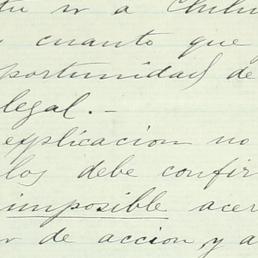 a Chihu
cuanto que
portunidad de
legal.-
explicacion no
los debe confir
imposible acer
r de accion, y a